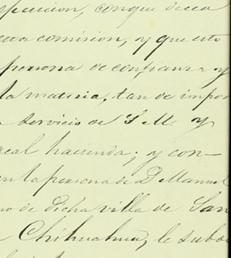 posicion, con que dicha
esta comision, y que esto
persona de confianza y
la materia, tan de impor
servicio de S. M. y
real hacienda; y con-
en la persona de Dn Manuel
no de dicha villa de San
Chihuahua, le subde